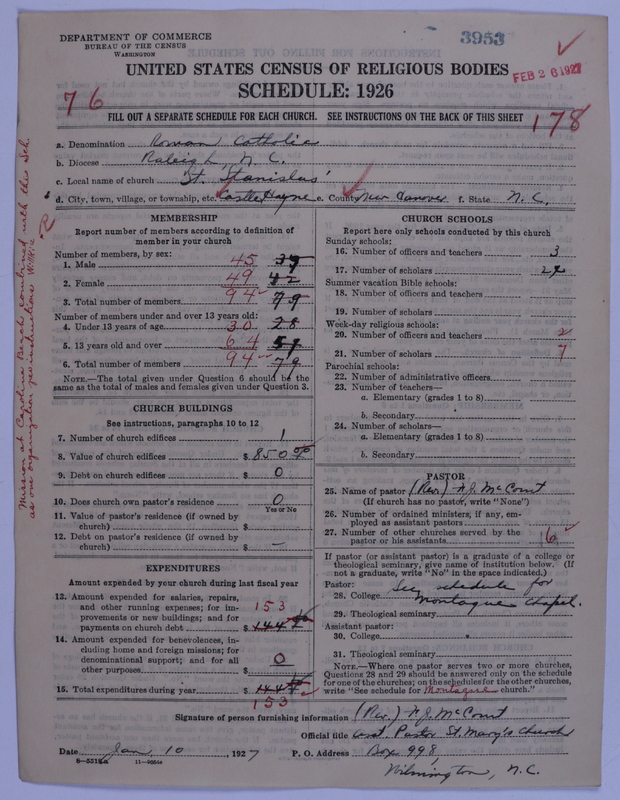 DEPARTMENT OF COMMERCE
BUREAU OF THE CENSUS
WASHINGTON
3953
FEB 26 1927
UNITED STATES CENSUS OF RELIGIOUS BODIES
SCHEDULE: 1926
76
FILL OUT A SEPARATE SCHEDULE FOR EACH CHURCH. SEE INSTRUCTIONS ON THE BACK OF THIS SHEET
178
a. Denomination Roman Catholic
b. Diocese Raleigh, N. C.
c. Local name of church St. Stanislaus'
d. City, town, village, or township, etc. Castle Hayne e. County New Hanover f. State N. C.
Mission at Carolina Beach combined with this Sch.
as one organization per instructions
MEMBERSHIP
Report number of members according to definition of
member in your church
Number of members, by sex:
1. Male 45 37
2. Female 49 42
3. Total number of members 94 79
Number of members under and over 13 years old:
4. Under 13 years of age 30 28
5. 13 years old and over 64 51
6. Total number of members 94 79
NOTE.—The total given under Question 6 should be the
same as the total of males and females given under Question 3.
CHURCH BUILDINGS
See instructions, paragraphs 10 to 12
7. Number of church edifices 1
8. Value of church edifices $ 850 00
9. Debt on church edifices $ 0
10. Does church own pastor's residence 0
Yes or No
11. Value of pastor's residence (if owned by
church) $
12. Debt on pastor's residence (if owned by
church) $ —
EXPENDITURES
Amount expended by your church during last fiscal year
13. Amount expended for salaries, repairs,
and other running expenses; for im-
provements or new buildings; and for
payments on church debt $ 153
14. Amount expended for benevolences, in-
cluding home and foreign missions; for
denominational support; and for all
other purposes $ 0
15. Total expenditures during year $
153
CHURCH SCHOOLS
Report here only schools conducted by this church
Sunday schools:
16. Number of officers and teachers 3
17. Number of scholars 24
Summer vacation Bible schools:
18. Number of officers and teachers
19. Number of scholars
Week-day religious schools:
20. Number of officers and teachers 2
21. Number of scholars 7
Parochial schools:
22. Number of administrative officers
23. Number of teachers—
a. Elementary (grades 1 to 8)
b. Secondary
24. Number of scholars—
a. Elementary (grades 1 to 8)
b. Secondary
PASTOR
25. Name of pastor (Rev.) N. J. McCourt
(If church has no pastor, write "None")
26. Number of ordained ministers, if any, em-
ployed as assistant pastors
27. Number of other churches served by the
pastor or his assistants 6
If pastor (or assistant pastor) is a graduate of a college or
theological seminary, give name of institution below. (If
not a graduate, write "No" in the space indicated.)
Pastor:
28. College See schedule for
Montague Chapel.
29. Theological seminary
Assistant pastor:
30. College
31. Theological seminary
NOTE.—Where one pastor serves two or more churches,
Questions 28 and 29 should be answered only on the schedule
for one of the churches; on the schedules for the other churches,
write "See schedule for Montague church."
Signature of person furnishing information (Rev.) N. J. McCourt
Official title Asst. Pastor St. Mary's Church
Date Jan 10 1927 P. O. Address Box 998,
Wilmington, N. C.